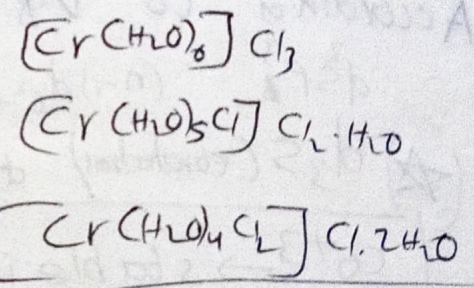 [Cr(H2O)6]Cl3
[Cr(H2O)5Cl]Cl2.H2O
[Cr(H2O)4Cl2]Cl.2H2O